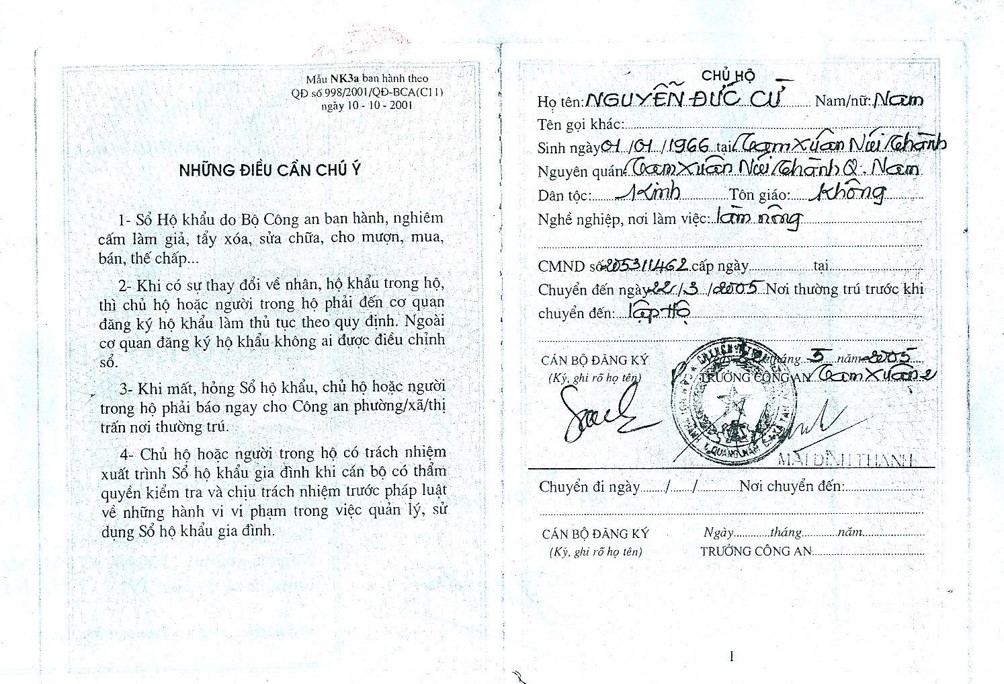 Mẫu NK3a ban hành theo
QĐ số 998/2001/QĐ-BCA(C11)
ngày 10 - 10 - 2001
NHỮNG ĐIỀU CẦN CHÚ Ý
1- Sổ Hộ khẩu do Bộ Công an ban hành, nghiêm
cấm làm giả, tẩy xóa, sửa chữa, cho mượn, mua,
bán, thế chấp...
2- Khi có sự thay đổi về nhân, hộ khẩu trong hộ,
thì chủ hộ hoặc người trong hộ phải đến cơ quan
đăng ký hộ khẩu làm thủ tục theo quy định. Ngoài
cơ quan đăng ký hộ khẩu không ai được điều chỉnh
sổ.
3- Khi mất, hỏng Sổ hộ khẩu, chủ hộ hoặc người
trong hộ phải báo ngay cho Công an phường/xã/thị
trấn nơi thường trú.
4- Chủ hộ hoặc người trong hộ có trách nhiệm
xuất trình Sổ hộ khẩu gia đình khi cán bộ có thẩm
quyền kiểm tra và chịu trách nhiệm trước pháp luật
về những hành vi vi phạm trong việc quản lý, sử
dụng Sổ hộ khẩu gia đình.
CHỦ HỘ
Họ tên: NGUYỄN ĐỨC CỪ Nam/nữ: Nam
Tên gọi khác:
Sinh ngày 01/01/1966 tại Tam Xuân Núi Thành
Nguyên quán: Tam Xuân Núi Thành Q. Nam
Dân tộc: Kinh Tôn giáo: Không
Nghề nghiệp, nơi làm việc: làm nông
CMND số 205311462 cấp ngày tại
Chuyển đến ngày 22/3/2005 Nơi thường trú trước khi
chuyển đến: Lập Hộ
CÁN BỘ ĐĂNG KÝ tháng 5 năm 2005
(Ký, ghi rõ họ tên) TRƯỞNG CÔNG AN Tam Xuân 2
MAI ĐÌNH THANH
Chuyển đi ngày / / Nơi chuyển đến:
CÁN BỘ ĐĂNG KÝ Ngày tháng năm
(Ký, ghi rõ họ tên) TRƯỞNG CÔNG AN
1